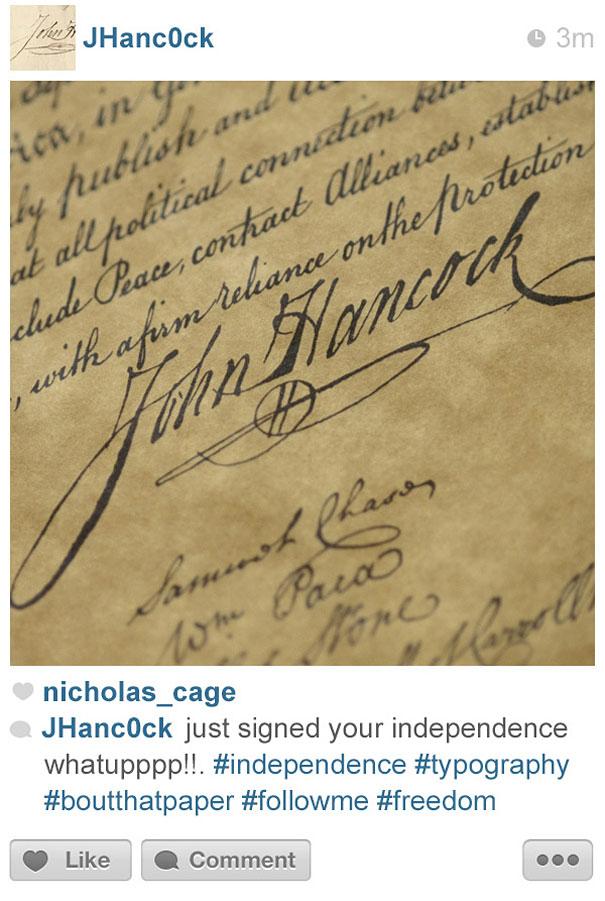 JHanc0ck
3m
by publish and
at all political connection
clude Peace, contract Alliances, establish
, with a firm reliance on the protection
John Hancock
Samuel Chase
Wm Paca
Stone
Carroll
nicholas_cage
JHanc0ck just signed your independence
whatupppp!!. #independence #typography
#boutthatpaper #followme #freedom
Like
Comment